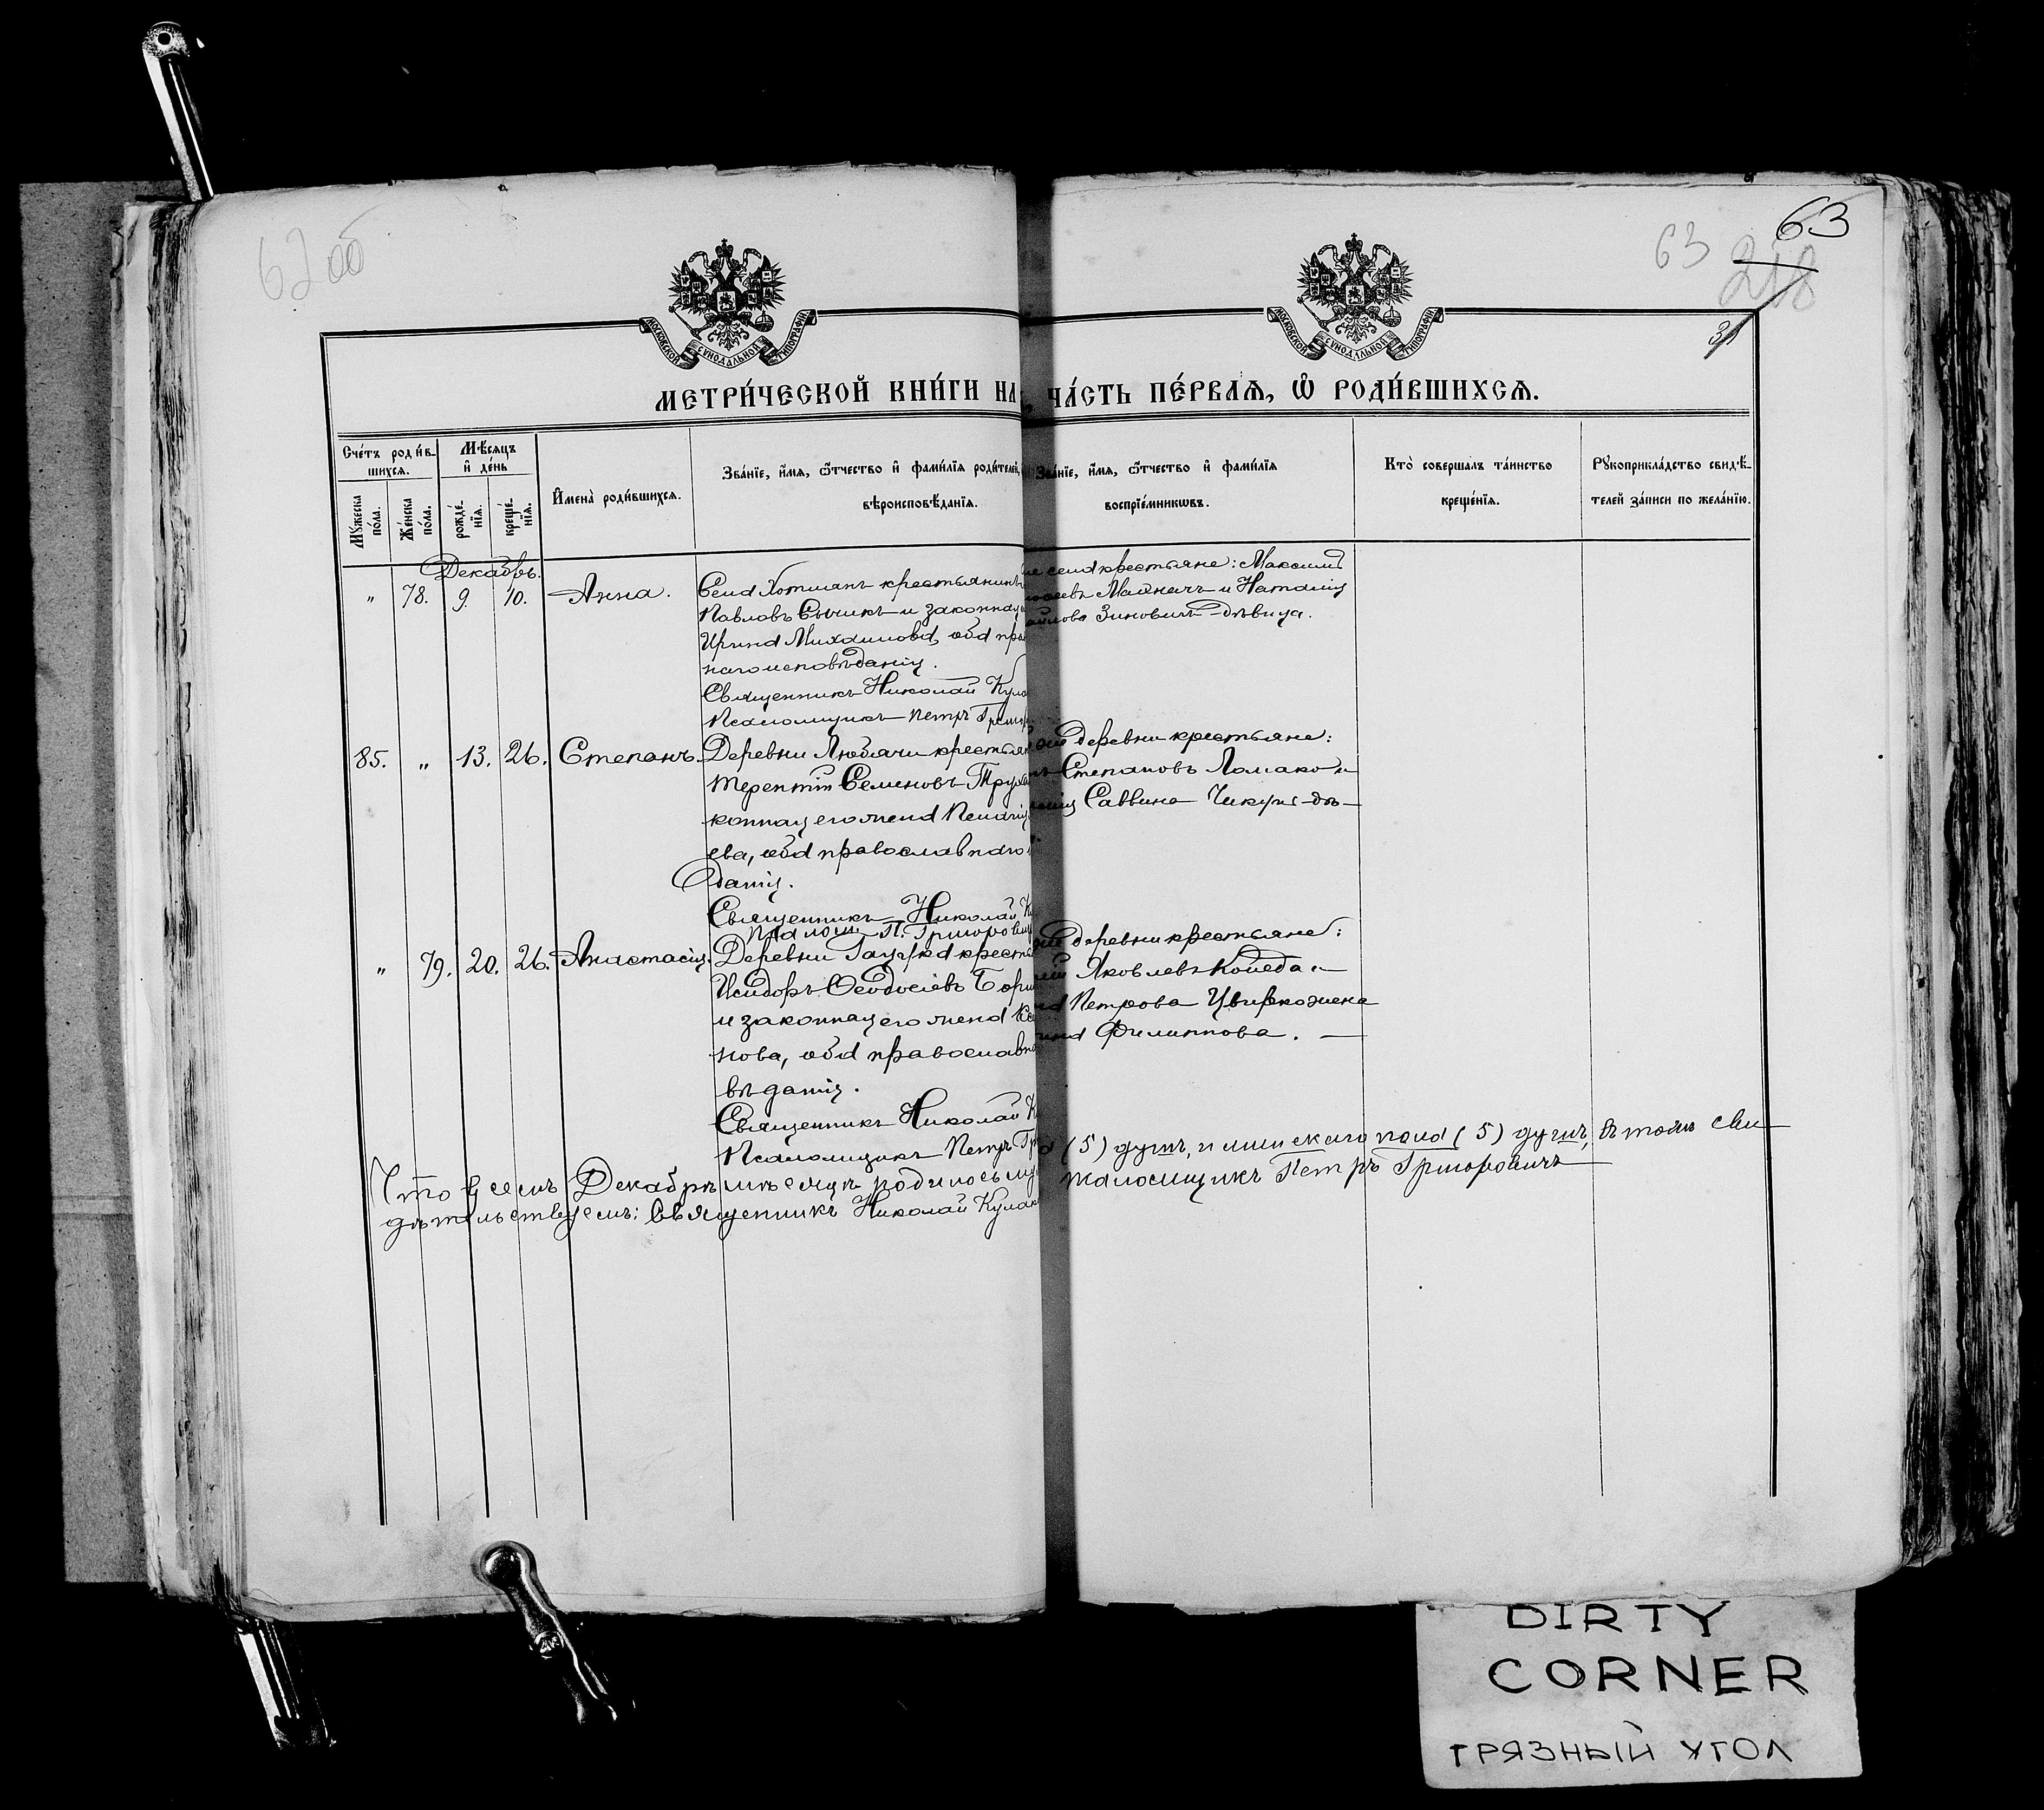 62 об
63
63
218
31
МОСКОВСКОЙ СѴНОДАЛЬНОЙ ТИПОГРАФІИ
МОСКОВСКОЙ СѴНОДАЛЬНОЙ ТИПОГРАФІИ
МЕТРИ́ЧЕСКОЙ КНИ́ГИ НА
ЧА́СТЬ ПЕ́РВАѦ, Ѡ҆ РОДИ́ВШИХСѦ.
Сче́тъ роди́в-
шихсѧ.
Мꙋ́жеска по́ла.
Же́нска по́ла.
Мѣ́сѧцъ
и҆ де́нь
рожде́-
нїѧ.
креще́-
нїѧ.
И҆мена̀ роди́вшихсѧ.
Зва́нїе, и҆́мѧ, ѻ҆́тчество и҆ фами́лїѧ роди́телей,
вѣроисповѣ́данїѧ.
Зва́нїе, и҆́мѧ, ѻ҆́тчество и҆ фами́лїѧ
воспрїе́мникѡвъ.
Кто̀ соверша́лъ та́инство
креще́нїѧ.
Рꙋкоприкла́дство свидѣ́-
телей за́писи по жела́нїю.
Декабрь.
" 78. 9. 10. Анна.
Села Хотиманъ крестьянинъ
Павловъ Сычикъ и законная
Ирина Михаилова, оба пра
наго исповѣданія.
Священникъ Николай Кула
Псаломщикъ Петръ Григор
села крестьяне: Максимъ
Махначъ и Наталія
Зиновичъ - дѣвица.
85. " 13. 26. Степанъ.
Деревни Любачи крестьян
Терентій Семеновъ Труха
конная его жена Пелагія
ева, оба православнаго
данія.
Священникъ Николай К
Псаломщ. П. Григорович
деревни крестьяне:
Степановъ Ломако и
Саввина Чикунъ - дѣ-
" 79. 20. 26. Анастасія.
Деревни Гацука кресть
Исидоръ Ѳеодосіевъ Бор
и законная его жена Ксе
нова, оба православна
вѣданія.
Священникъ Николай К
Псаломщикъ Петръ Гр
деревни крестьяне:
Яковлевъ Коледа и
Петрова Цвирко жена
Филиппова.
Что въ семъ Декабрѣ мѣсяцѣ родилось му
(5) душъ, и женскаго пола (5) душъ, въ томъ сви
дѣтельствуемъ: Священникъ Николай Кулак
Псаломщикъ Петръ Григоровичъ
DIRTY
CORNER
ГРЯЗНЫЙ УГОЛ